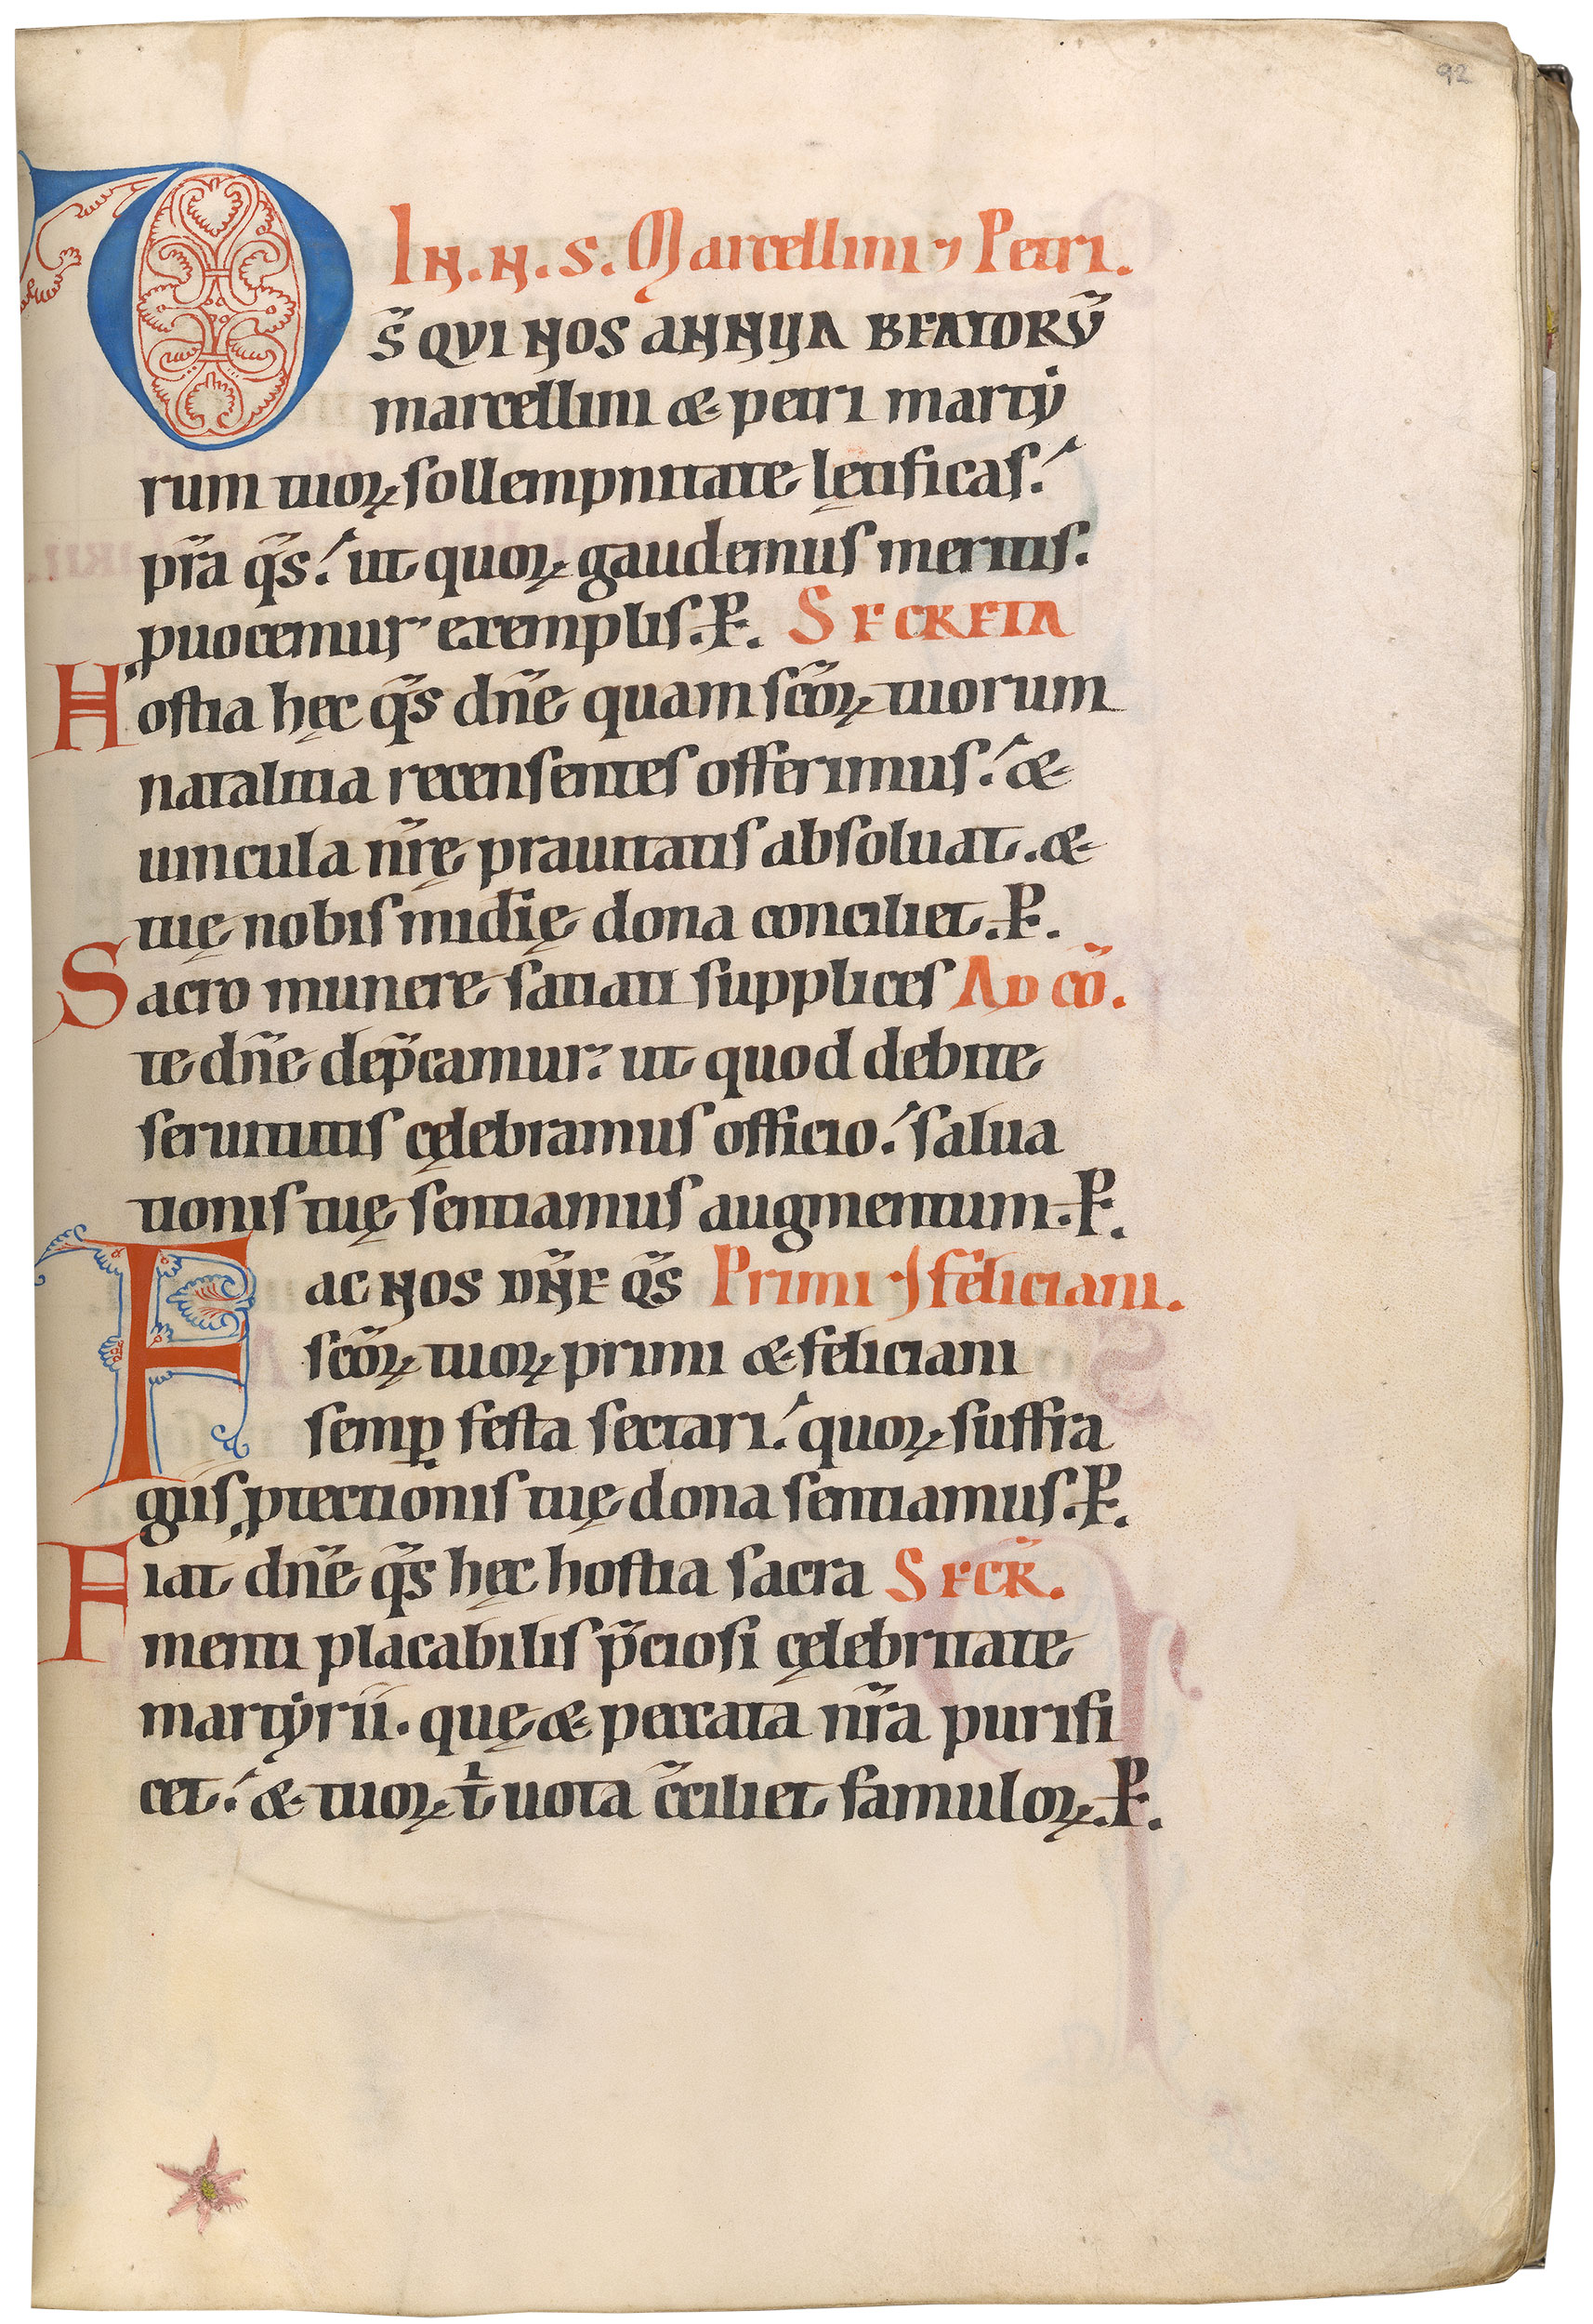 92
In. n. s. Marcellini ⁊ Petri.
Ds̃ QVI NOS ANNUA BEATORṼ
marcellini & petri marty̾
rum tuoꝝ sollempnitate lętificas.
p̃ra q̃s. ut quoꝝ gaudemus meritis.
ꝓuocemur exemplis. P. SECRETA
Hostia hęc q̃s dñe quam scõꝝ tuorum
natalitia recensentes offerimus. &
uincula nr̃ę prauitatis absoluat. &
tuę nobis mid̃ię dona conciliet. P.
Sacro munere satiati supplices AD CÕ.
te dñe dep̃camur: ut quod debite
seruitutis cęlebramus officio. salua
tionis tuę sentiamus augmentum. P.
FAC NOS DÑE Q̃S Primi ⁊ feliciani.
scõꝝ tuoꝝ primi & feliciani
semꝑ festa sectari. quoꝝ suffra
giis ꝓtectionis tuę dona sentiamus. P.
Fiat dñe q̃s hęc hostia sacra SECR̃.
menti placabilis p̃ciosi cęlebritate
martyrii. quę & peccata nr̃a purifi
cet. & tuoꝝ t̵ uota c̃ciliet famuloꝝ. P.